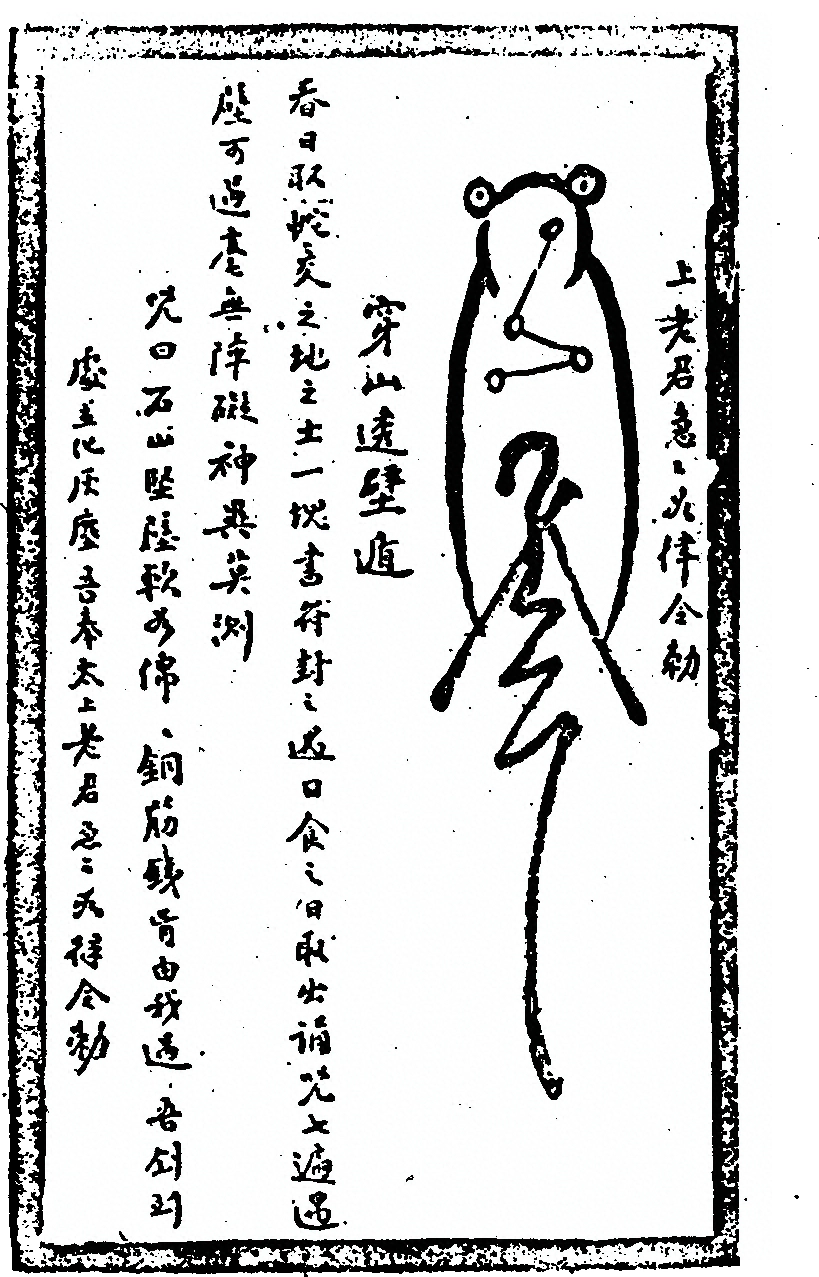 上老君急〻如律令勅
穿山透壁遁
春日取蛇交之地之土一塊書符封之遇口食之日取出誦咒七遍遇
壁可過毫無障礙神異莫測
咒曰石山堅隆軟如綿、銅筋鐵骨由我過吾剑到
處立化灰塵吾奉太上老君急〻如律令勅